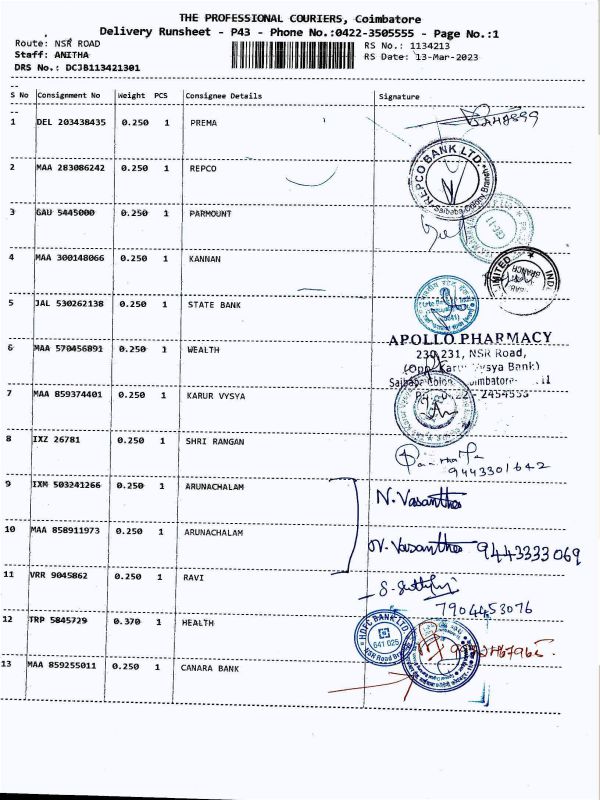 THE PROFESSIONAL COURIERS, Coimbatore
Delivery Runsheet - P43 - Phone No.:0422-3505555 - Page No.:1
Route: NSR ROAD RS No.: 1134213
Staff: ANITHA RS Date: 13-Mar-2023
DRS No.: DCJB113421301
--
S No Consignment No Weight PCS Consignee Details Signature
--
1 DEL 203438435 0.250 1 PREMA
2 MAA 283086242 0.250 1 REPCO
REPCO BANK LTD.
Saibaba Colony Branch
3 GAU 5445000 0.250 1 PARMOUNT
4 MAA 300148066 0.250 1 KANNAN
5 JAL 530262138 0.250 1 STATE BANK
APOLLO PHARMACY
230,231, NSR Road,
6 MAA 570456891 0.250 1 WEALTH
(Opp. Karur Vysya Bank)
7 MAA 859374401 0.250 1 KARUR VYSYA
8 IXZ 26781 0.250 1 SHRI RANGAN
9443301642
9 IXM 503241266 0.250 1 ARUNACHALAM
N. Vasantha
10 MAA 858911973 0.250 1 ARUNACHALAM
N. Vasantha 9443333069
11 VRR 9045862 0.250 1 RAVI
7904453076
12 TRP 5845729 0.370 1 HEALTH
HDFC BANK LTD
641 025
NSR Road
13 MAA 859255011 0.250 1 CANARA BANK